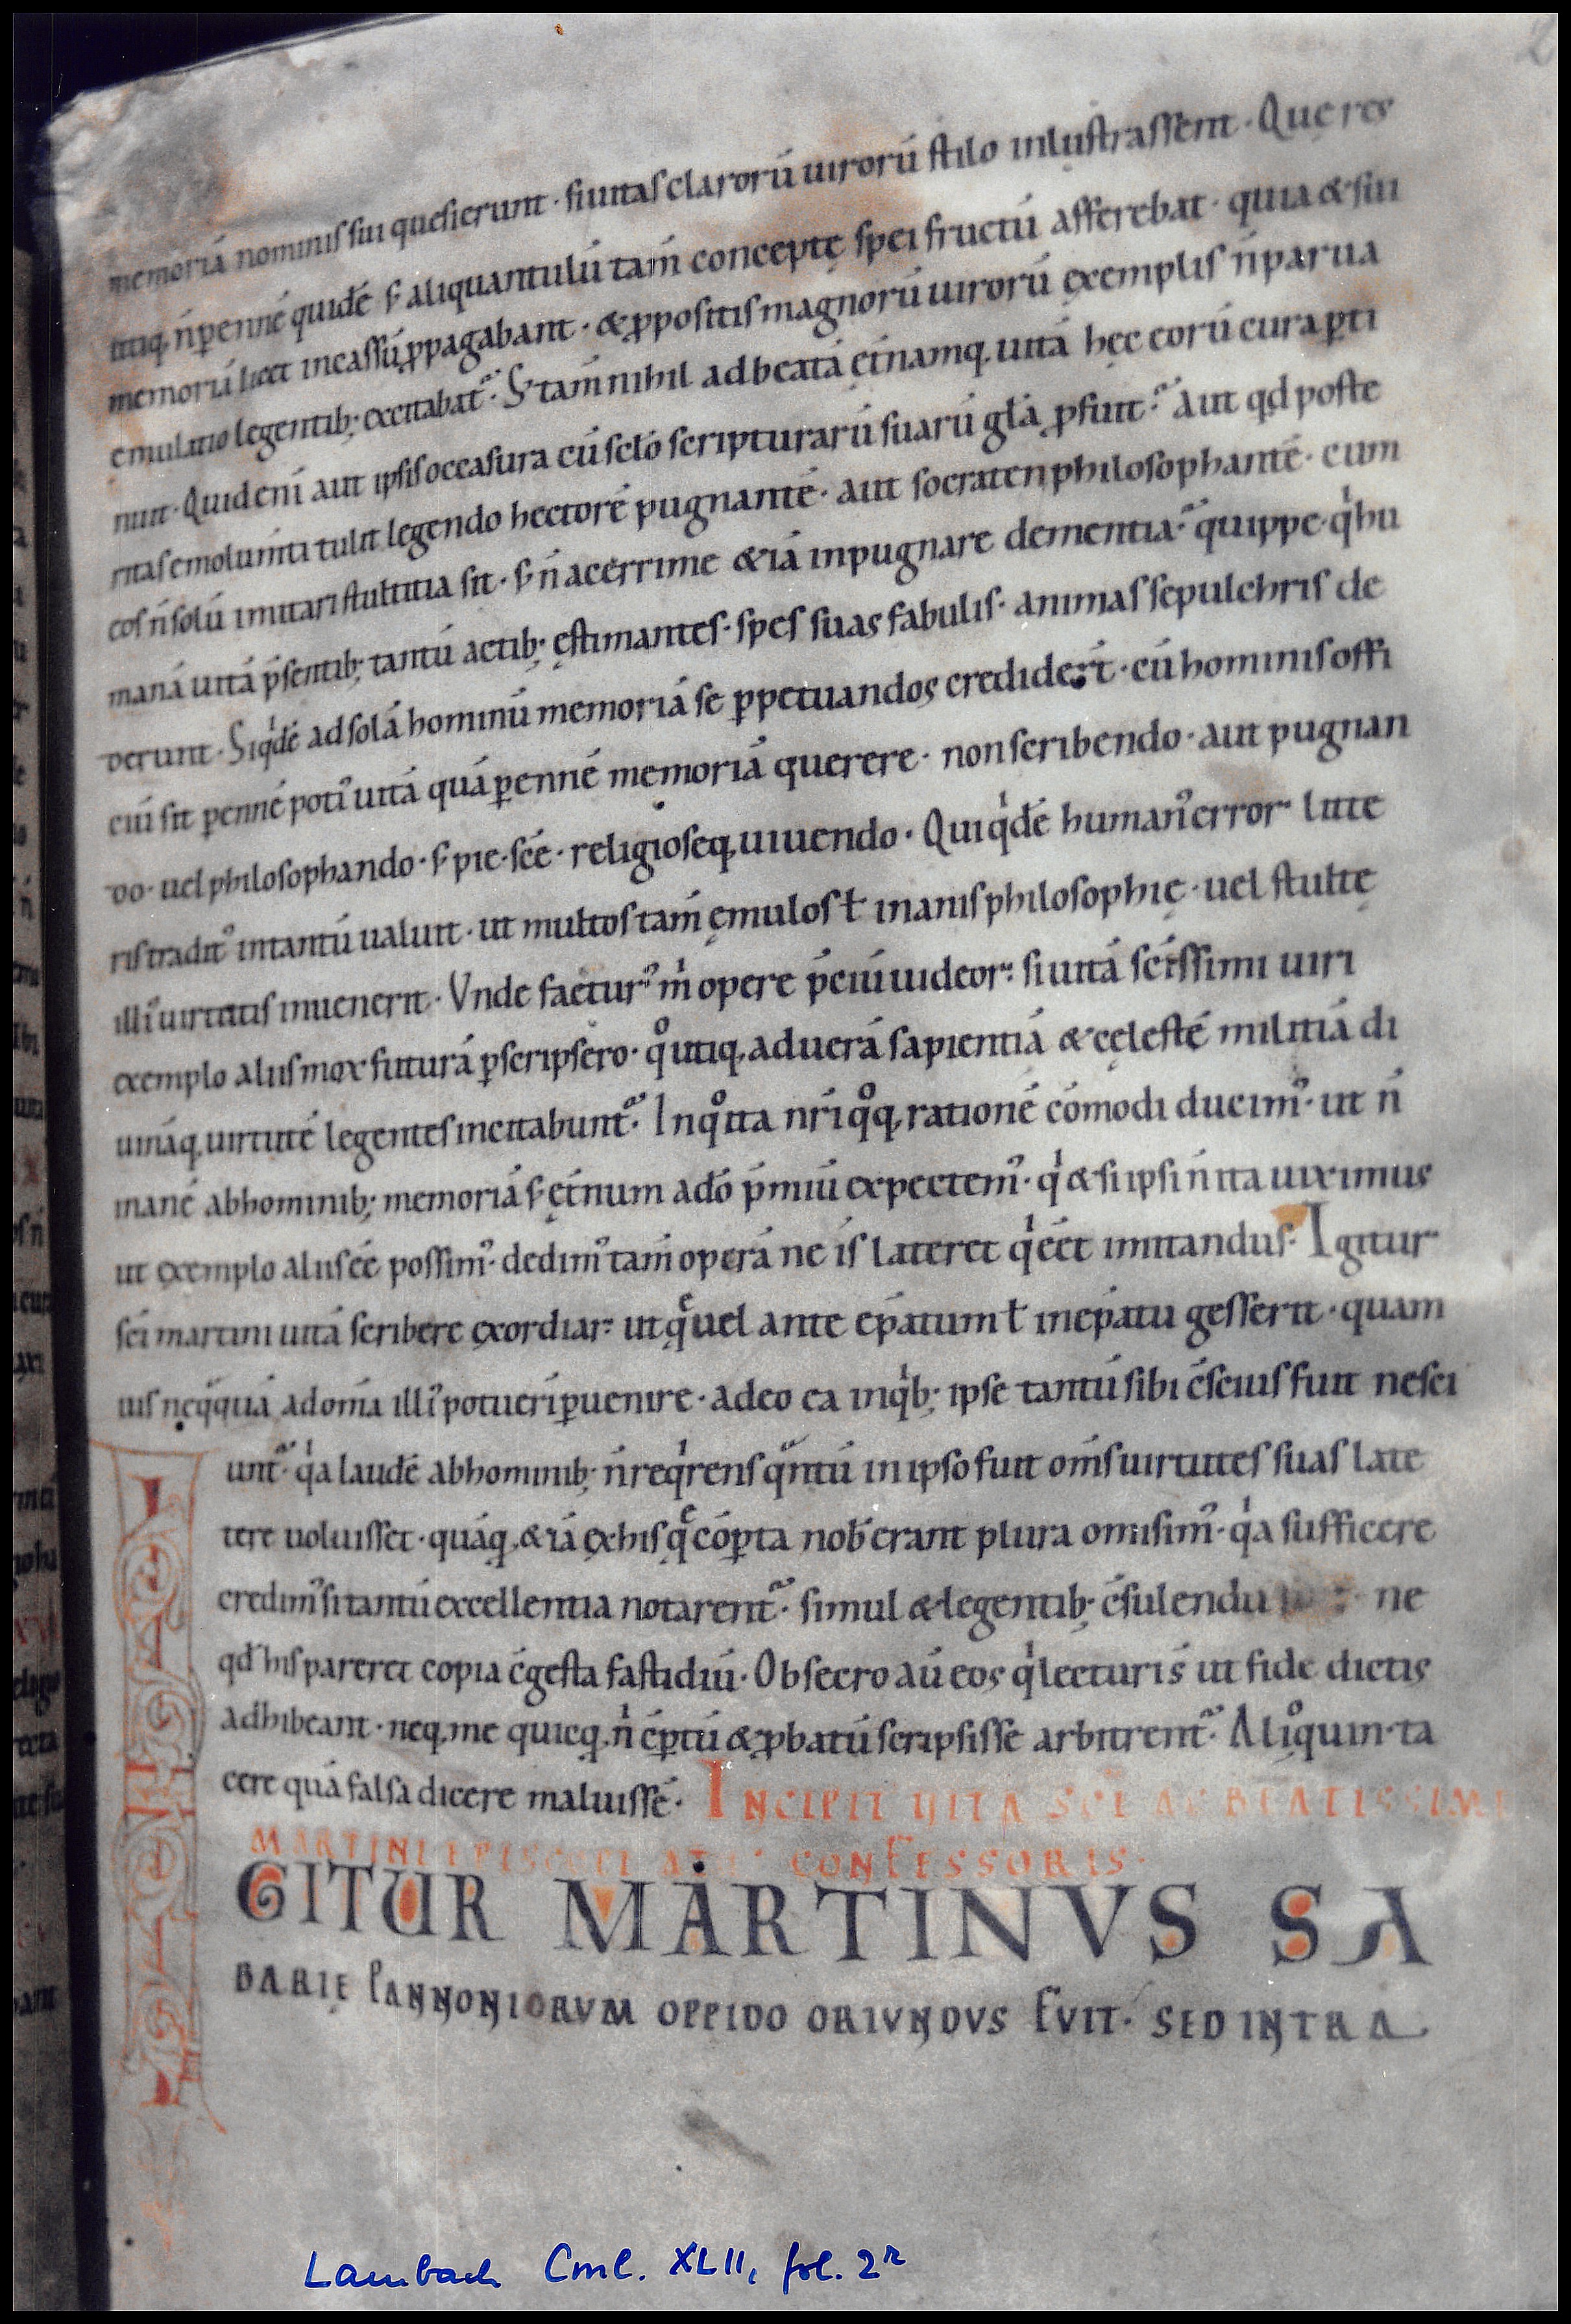 2
memoriā nominis sui quesierunt · si uitas clarorū uirorū stilo inlustrassent · Que res
utiq; n̄ perennē quidē s; aliquantulū tam̄ conceptę spei fructū afferebat · quia & sui
memoriā licet incassū ppagabant · & ppositis magnorū uirorū exemplis n̄ parua
emulatio legentib; excitabat᷑ · S; tam̄ nihil ad beatā ęt̄namq; uitā hęc eorū cura pti
nuit · Quid enī aut ipsis occasura cū sc̄lo scripturarū suarū gl̄a pfuit · Aut qd poste
ritas emolum̄ti tulit legendo hectorē pugnantē · aut socraten philosophantē · cum
eos n̄ solū imitari stultitia sit · s; n̄ acerrime & iā inpugnare dementia · quippe · qi hu
manā uitā p̄sentib; tantū actib; ęstimantes · spes suas fabulis · animas sepulchris de
derunt · Siqidē ad solā hominū memoriā se ppetuandos crediderт̄ · cū hominis offi
ciū sit pennē poti᷒ uitā quā pennē memoriā querere · non scribendo · aut pugnan
do · uel philosophando · s; pie · sc̄e · religioseq; uiuendo · Qui qidē human᷒ error litte
ris tradit᷒ in tantū ualuit · ut multos tam̄ ęmulos ł inanis philosophię · uel stultę
illi᷒ uirtutis inuenerit · Vnde factur᷒ m̄ opere p̄ciū uideor · si uitā sc̄issimi uiri
exemplo aliis mox futurā pscripsero · qo utiq; ad uerā sapientiā & cęlestē militiā di
uināq; uirtutē legentes incitabunt᷑ · In qo ita nr̄i qoq; rationē cōmodi ducim᷒ · ut n̄
inanē ab hominib; memoriā s; ęt̄num a dō p̄miū expectem᷒ · qi & si ipsi n̄ ita uiximus
ut exemplo aliis eē possim᷒ · dedim᷒ tam̄ operā ne is lateret qi eēt imitandus · Igitur
sc̄i martini uitā scribere exordiar · ut qe uel ante ep̄atum ł in ep̄atu gesserit · quam
uis neqquā ad om̄a illi᷒ potuerī puenire · adeo ea in qib; ipse tantū sibi c̄scius fuit nesci
unt᷑ · qia laudē ab hominib; n̄ reqirens qantū in ipso fuit om̄s uirtutes suas late
tere uoluisset · quāq; & iā ex his qe cōpta nob̄ erant plura omisim᷒ · qia sufficere
credim᷒ si tantū excellentia notarent᷑ · simul & legentib; c̄sulendū ne
qd his pareret copia c̄gesta fastidiū · Obsecro aū eos qi lecturi s̄ ut fidē dictis
adhibeant · neq; me quicq; n̄ c̄ptū & pbatū scripsisse arbitrent᷑ · Alioquin · ta
cere quā falsa dicere maluissē · INCIPIT UITA SCI AC BEATISSIMI
MARTINI EPISCOPI ATQ; CONFESSORIS ·
IGITUR MARTINVS SA
BARIĘ PANNONIORVM OPPIDO ORIVNDVS FVIT · SED INTRA
Lambach Cml. XLII, fol. 2r